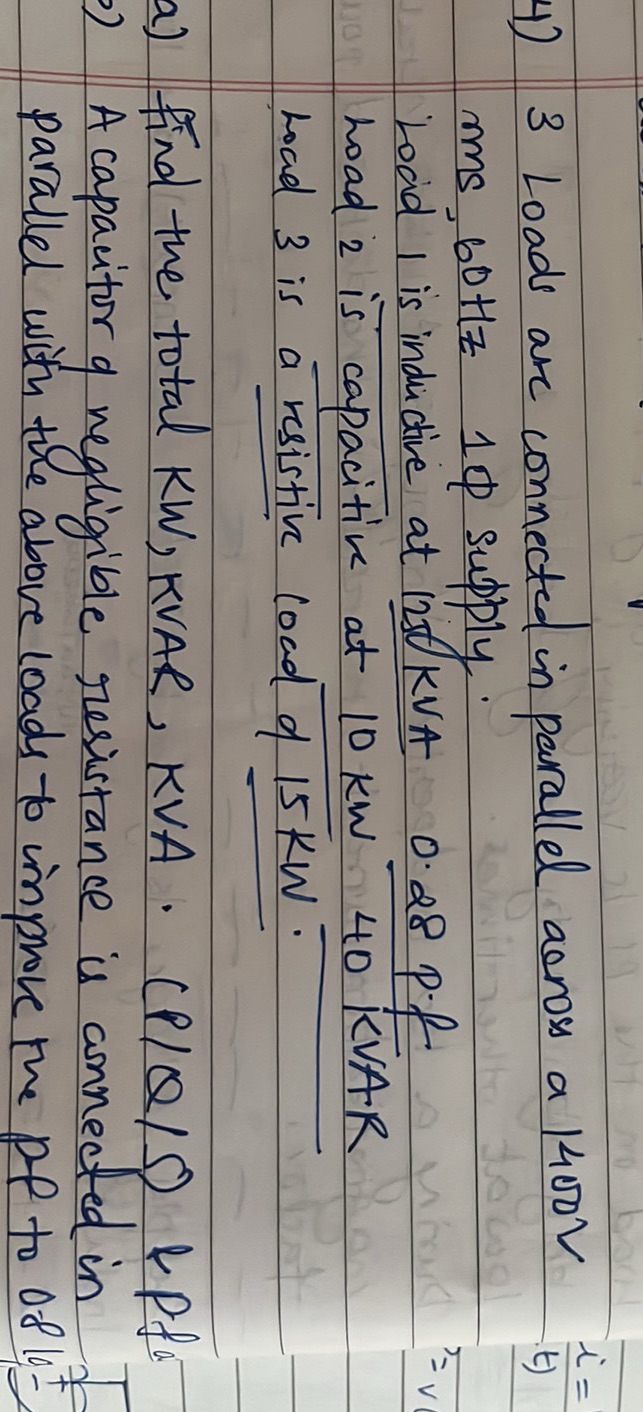 4) 3 Loads are connected in parallel across a 1400V
rms, 60Hz 1Φ supply.
Load 1 is inductive at 125 KVA 0.28 p.f
Load 2 is capacitive at 10 KW 40 KVAR
Load 3 is a resistive load of 15KW.
a) find the total KW, KVAR, KVA. (P/Q/S) & Pf
A capacitor of negligible resistance is connected in
parallel with the above loads to improve the pf to 0.8